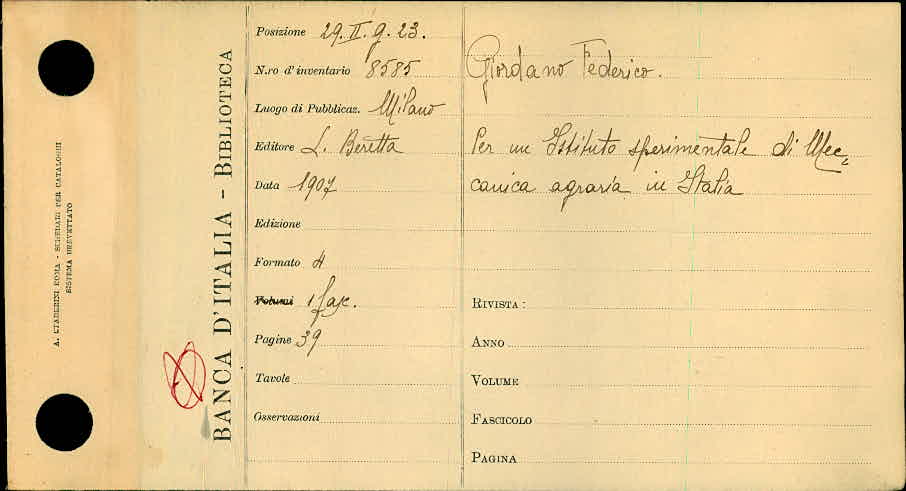 A. STADERINI ROMA - SCHEDARI PER CATALOGHI
SISTEMA BREVETTATO
BANCA D'ITALIA - BIBLIOTECA
Posizione 29. II. g. 23.
N.ro d'inventario 8585
Luogo di Pubblicaz. Milano
Editore L. Beretta
Data 1907
Edizione
Formato 4
Volumi 1 fasc.
Pagine 39
Tavole
Osservazioni
Giordano Federico.
Per un Istituto sperimentale di Mec-
canica agraria in Italia
RIVISTA:
ANNO
VOLUME
FASCICOLO
PAGINA